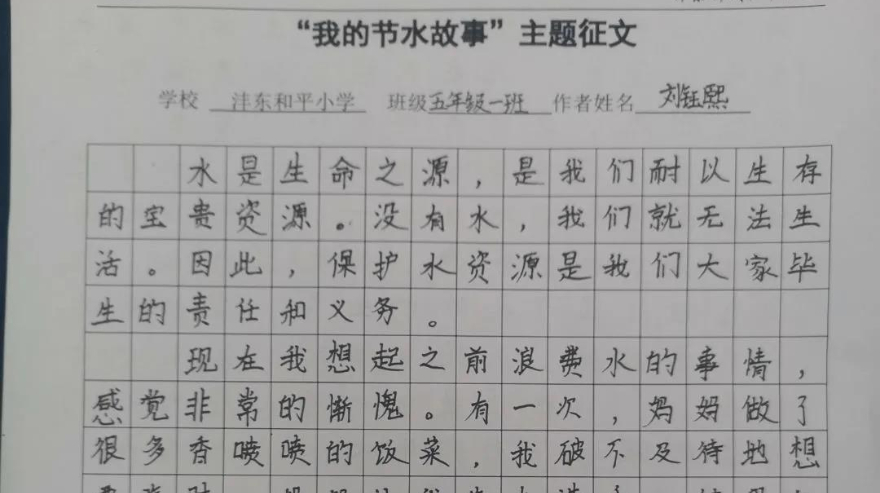 “我的节水故事”主题征文
学校 沣东和平小学 班级 五年级一班 作者姓名 刘钰熙
水是生命之源，是我们耐以生存
的宝贵资源。没有水，我们就无法生
活。因此，保护水资源是我们大家毕
生的责任和义务。
现在我想起之前浪费水的事情，
感觉非常的惭愧。有一次，妈妈做了
很多香喷喷的饭菜，我破不及待地想